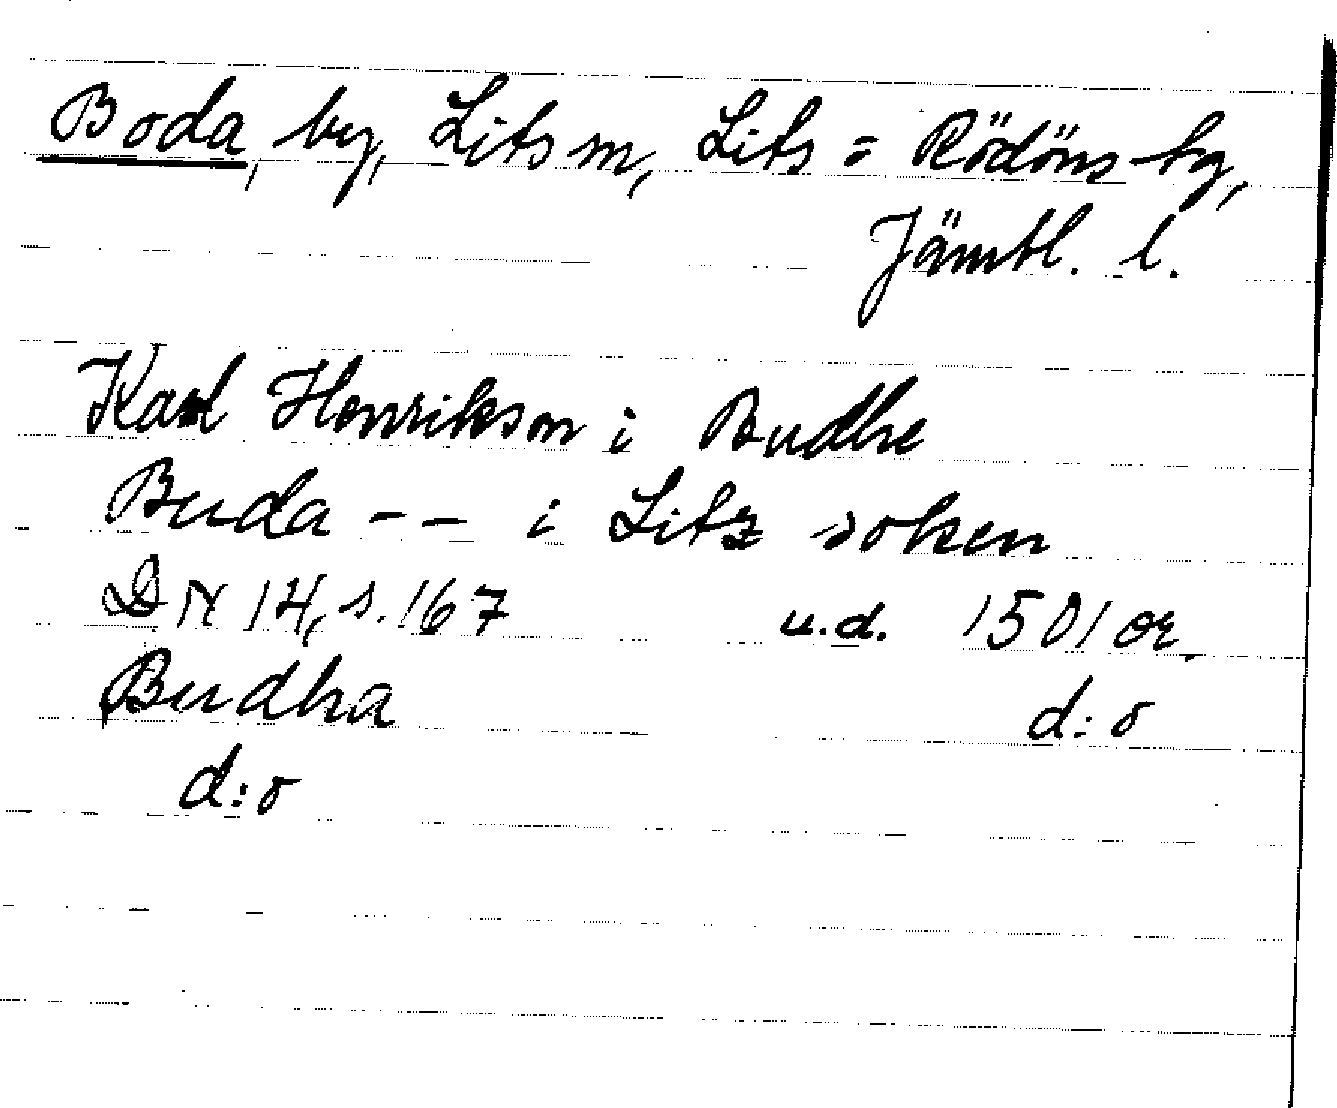 Boda, by, Lits sn, Lits = Rödöns tg,
Jämtl. l.
Karl Henrikson i Budhe
Buda - - i Litz soken
DN 14, s. 167 u.d. 1501 or.
Budha d:o
d:o